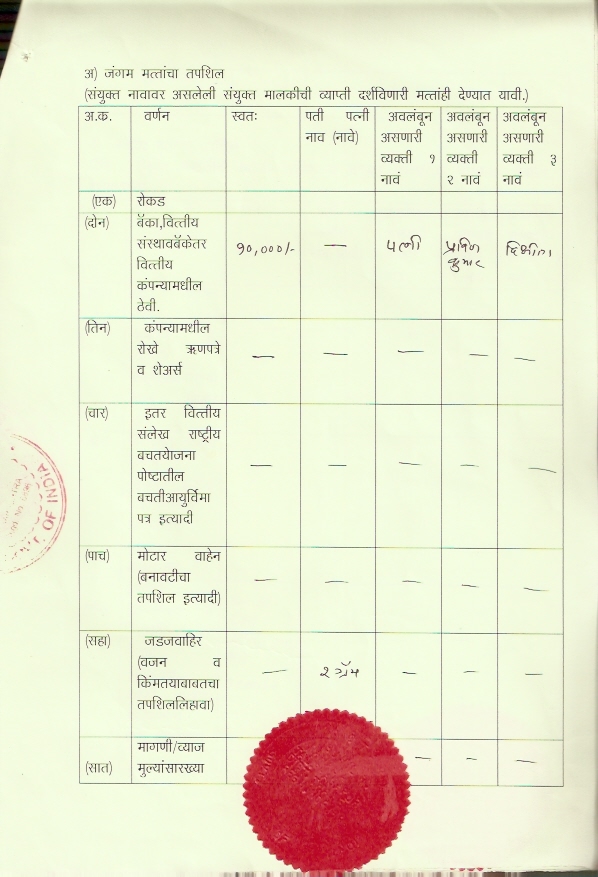 अ) जंगम मत्तांचा तपशिल
(संयुक्त नावावर असलेली संयुक्त मालकीची व्याप्ती दर्शविणारी मत्तांही देण्यात यावी.)
अ.क. वर्णन स्वतः पती पत्नी नाव (नावे) अवलंबून असणारी व्यक्ती १ नावं अवलंबून असणारी व्यक्ती २ नावं अवलंबून असणारी व्यक्ती ३ नावं
(एक) रोकड
(दोन) बॅका,वित्तीय
संस्थावबॅकेतर १०,०००/- — पत्नी
वित्तीय कुमार
कंपन्यामधील
ठेवी.
(तिन) कंपन्यामधील
रोखे ऋणपत्रे — — — — —
व शेअर्स
(चार) इतर वित्तीय
संलेख राष्ट्रीय
बचतयोजना
पोष्टातील — — — — —
बचतीआयुर्विमा
पत्र इत्यादी
(पाच) मोटार वाहेन
(बनावटीचा — — — — —
तपशिल इत्यादी)
(सहा) जडजवाहिर
(वजन व — २ ग्रॅम — — —
किंमतयाबाबतचा
तपशिललिहावा)
मागणी/व्याज
(सात) मुल्यांसारख्या — — —
OF INDIA